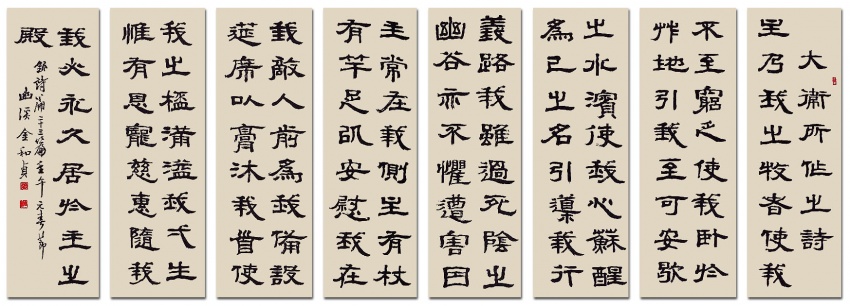 大衛所作之詩
主乃我之牧者使我
不至窮乏使我臥於
艸地引我至可安歇
之水濱使我心蘇醒
為己之名引導我行
義路我雖過死陰之
幽谷亦不懼遭害因
主常在我側主有杖
有竿足以安慰我在
我敵人前為我備設
筵席以膏沐我首使
我之楹滿溢我弌生
惟有恩寵慈惠隨我
我必永久居於主之
殿
錄詩篇二十三篇壬午元春節
幽溪金和貞